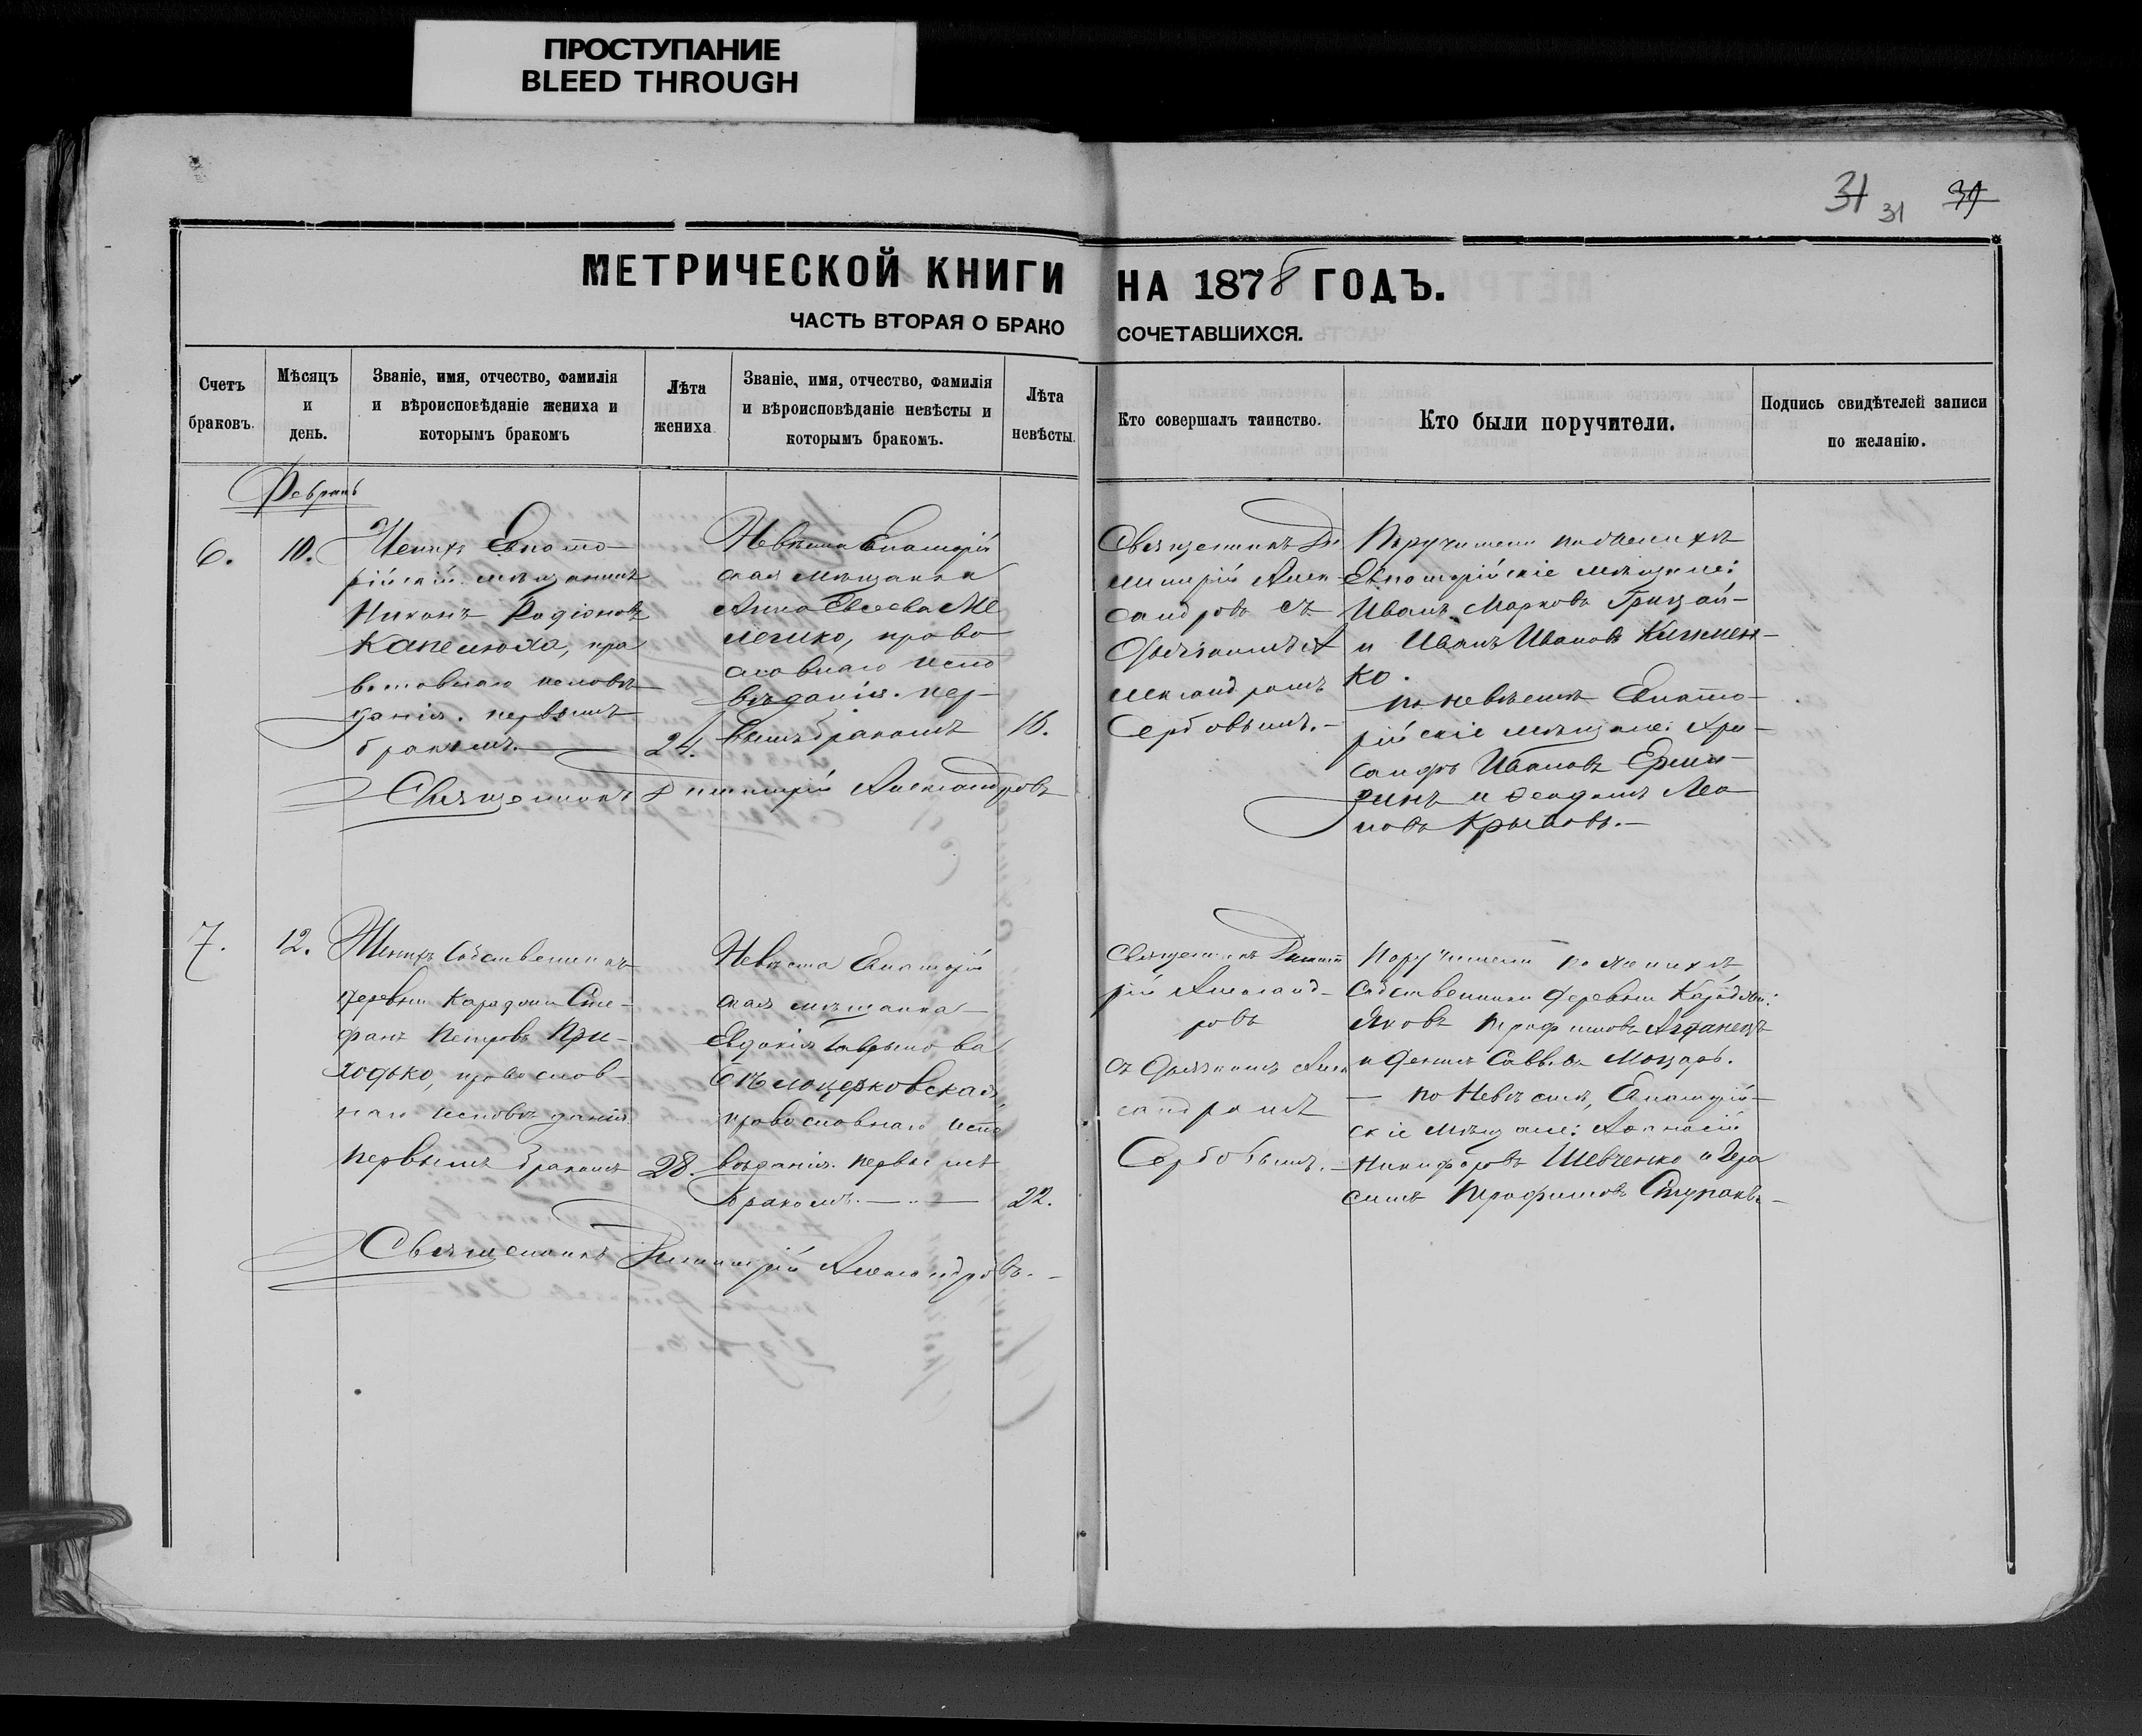 ПРОСТУПАНИЕ
BLEED THROUGH
31 31 31
МЕТРИЧЕСКОЙ КНИГИ НА 1878 ГОДЪ.
ЧАСТЬ ВТОРАЯ О БРАКОСОЧЕТАВШИХСЯ.
Счетъ браковъ.
Мѣсяцъ и день.
Званіе, имя, отчество, фамилія и вѣроисповѣданіе жениха и которымъ бракомъ
Лѣта жениха
Званіе, имя, отчество, фамилія и вѣроисповѣданіе невѣсты и которымъ бракомъ.
Лѣта невѣсты.
Кто совершалъ таинство.
Кто были поручители.
Подпись свидѣтелей записи по желанію.
Февраль
6.
10.
Женихъ Евпато-
рійскій мѣщанинъ
Никонъ Родіоновъ
Капелюха, пра
вославнаго исповѣ
данія. первымъ
бракомъ.
24.
Невѣста Евпаторій
ская мѣщанка
Анна Евсеева Ме
лешко, право
славнаго испо
вѣданія. пер-
вымъ бракомъ
16.
Священникъ Ди
митрій Алек
сандровъ съ
Дьячкомъ А
лександромъ
Сербовымъ.-
Поручители по женихѣ
Евпаторійскіе мѣщане:
Иванъ Марковъ Грицай-
и Иванъ Ивановъ
ко.
по невѣстѣ Евпато-
рійскіе мѣщане: Хри-
санфъ Ивановъ
и
Крыловъ.-
Священникъ Димитрій Александровъ
7.
12.
Женихъ Собственникъ
деревни Караджи Сте-
фанъ Петровъ При-
ходько, правослов-
наго исповѣданія
первымъ бракомъ
28.
Невѣста Евпаторій
ская мѣщанка
Евдокія Гаврилова
Бѣлоцерковская,
православнаго испо
вѣданія. первымъ
бракомъ.
22.
Священникъ Димит
рій Александ-
ровъ
съ Дьячкомъ Алек
сандромъ
Сербовымъ.-
Поручители по женихѣ
Собственники деревни Караджи:
Яковъ Трофимовъ
и Савв. Моцарь.
- по Невѣстѣ, Евпаторій-
скіе мѣщане: Афанасій
Никифоровъ Шевченко и Гера
симъ Трофимовъ Ступакъ-
Священникъ Димитрій Александровъ.-